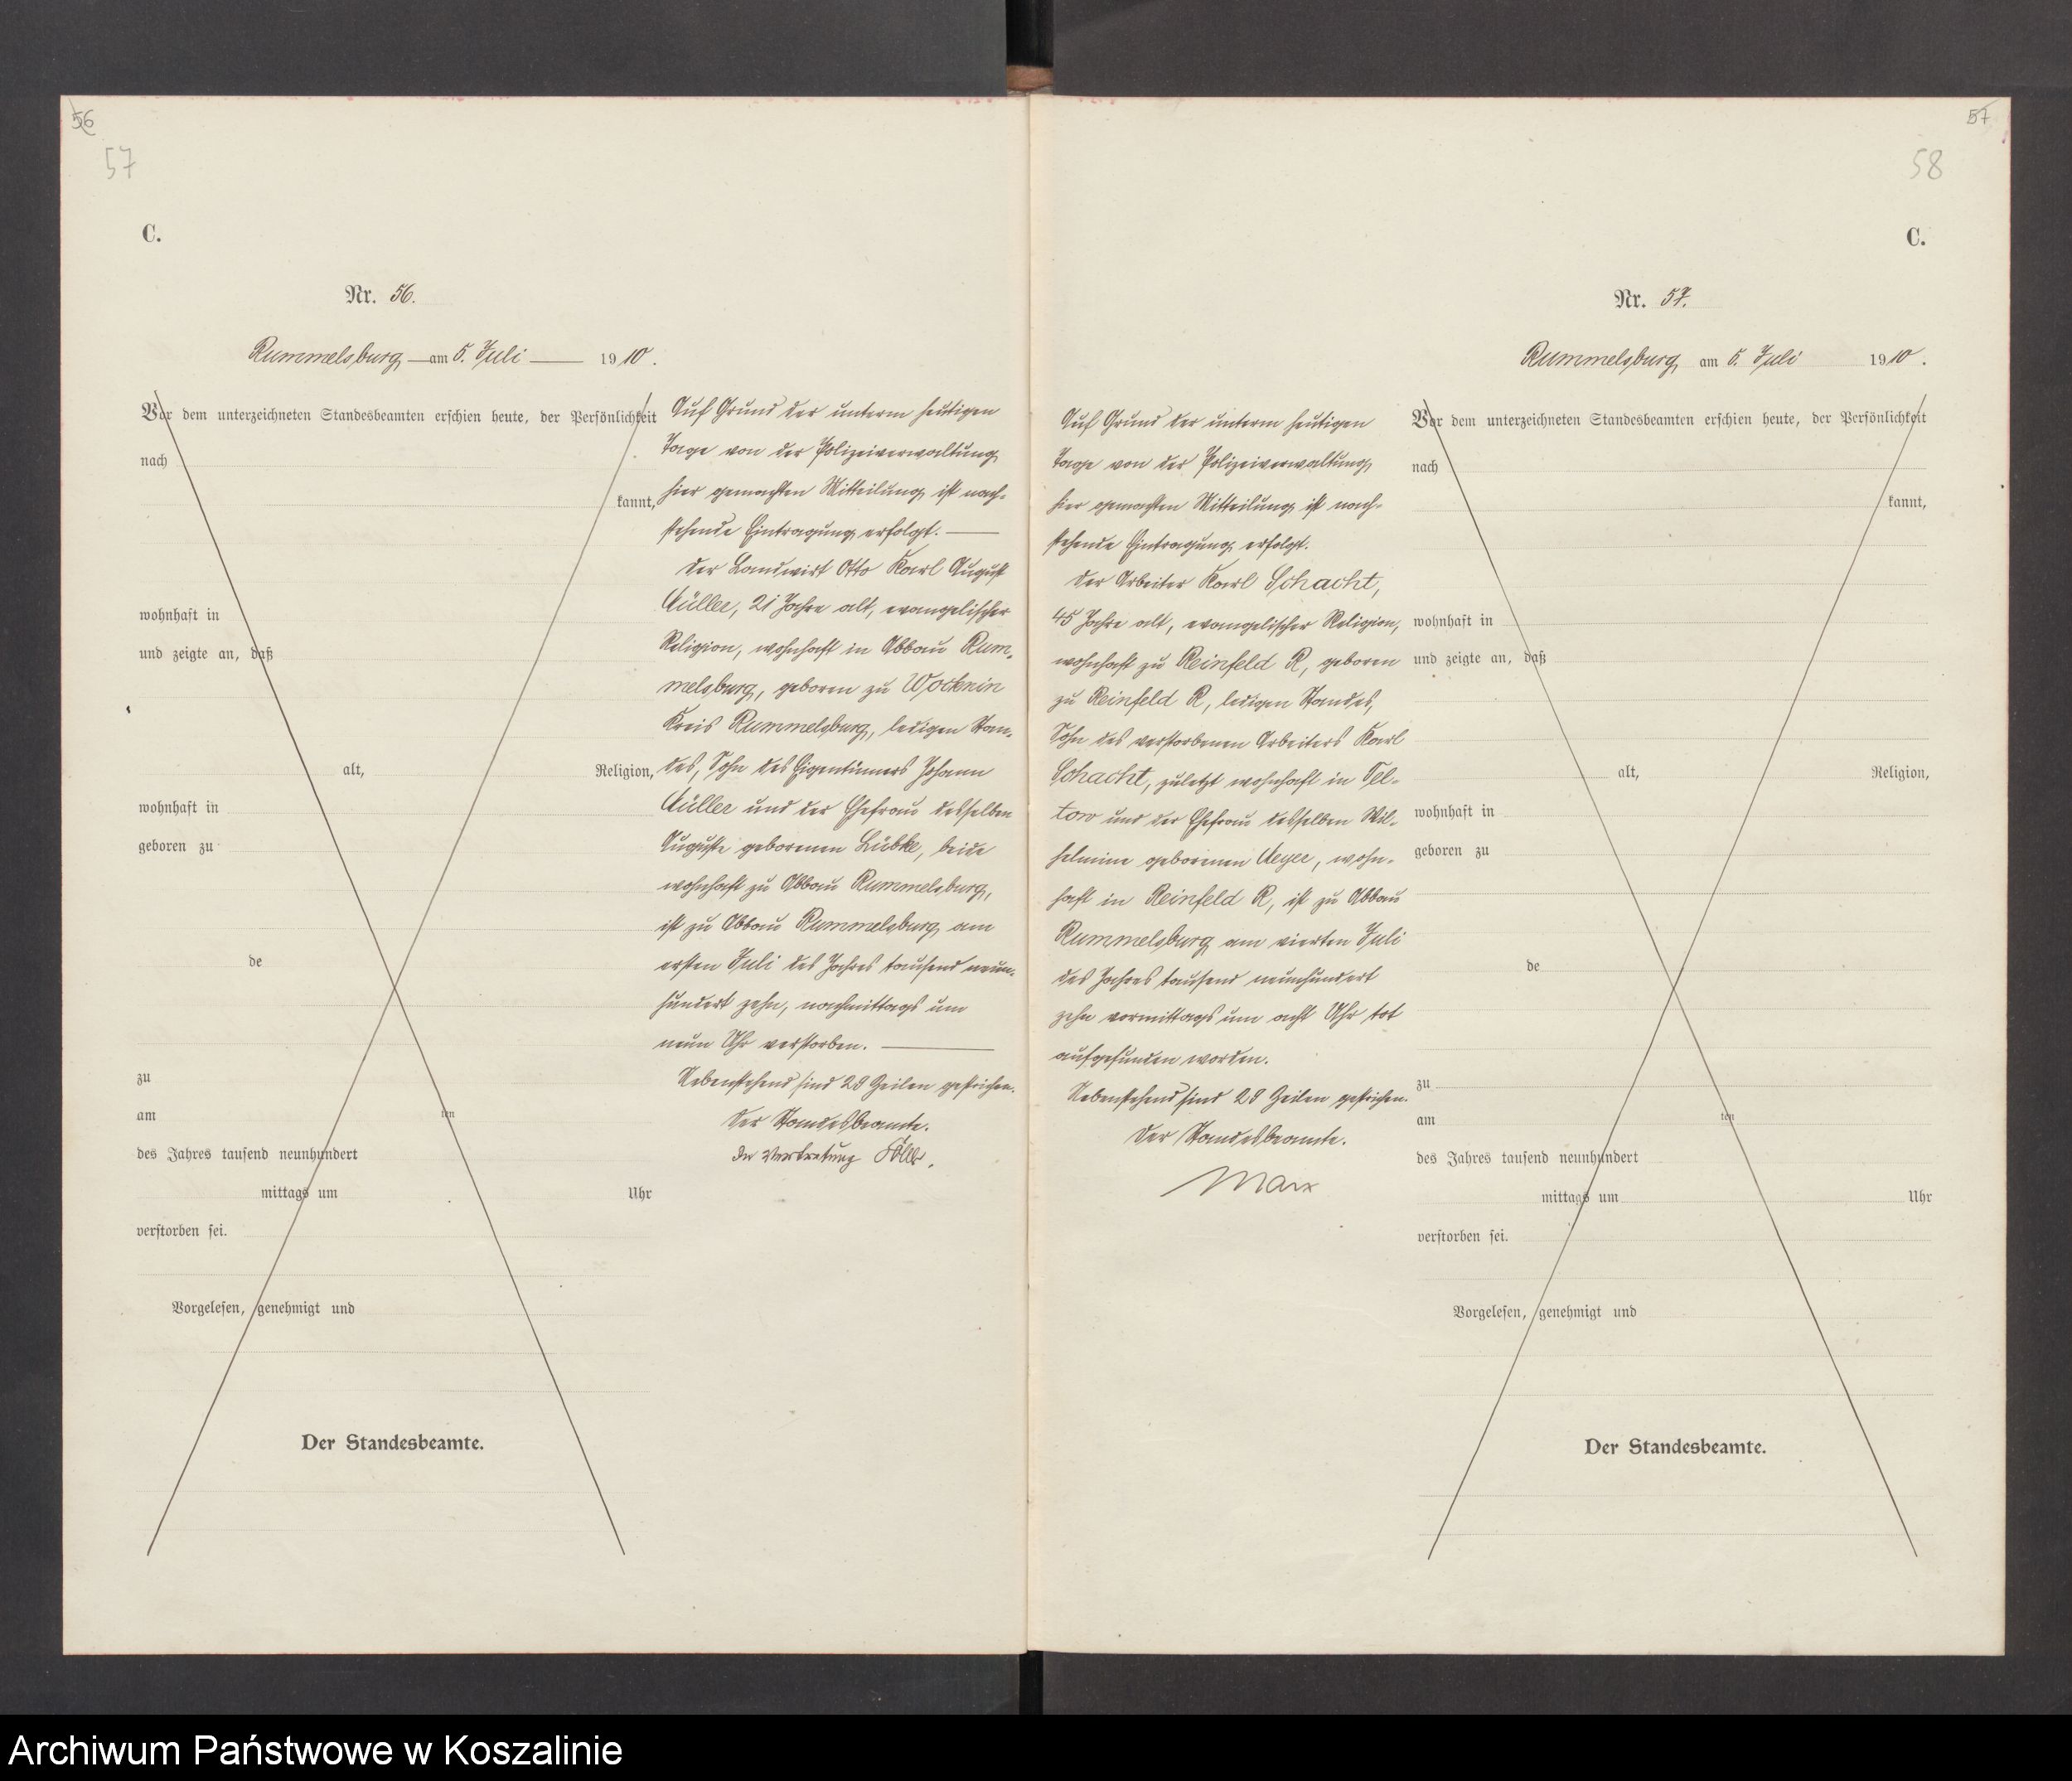 56
57
C.
Nr. 56.
Rummelsburg am 5. Juli 1910.
Vor dem unterzeichneten Standesbeamten erschien heute, der Persönlichkeit
nach
kannt,
wohnhaft in
und zeigte an, daß
alt, Religion,
wohnhaft in
geboren zu
de
zu
am ten
des Jahres tausend neunhundert
mittags um Uhr
verstorben sei.
Vorgelesen, genehmigt und
Der Standesbeamte.
Auf Grund der unterm heutigen
Tage von der Polizeiverwaltung
hier gemachten Mitteilung ist nach-
stehende Eintragung erfolgt.
Der Landwirt Otto Karl August
Müller, 21 Jahre alt, evangelischer
Religion, wohnhaft in Abbau Rum-
melsburg, geboren zu Wocknin
Kreis Rummelsburg, ledigen Stan-
des, Sohn des Eigentümers Johann
Müller und der Ehefrau desselben
Auguste geborenen Lübke, beide
wohnhaft zu Abbau Rummelsburg,
ist zu Abbau Rummelsburg am
ersten Juli des Jahres tausend neun-
hundert zehn, nachmittags um
neun Uhr verstorben.
Nebenstehend sind 28 Zeilen gestrichen.
Der Standesbeamte.
In Vertretung
57
58
C.
Nr. 57.
Rummelsburg am 5. Juli 1910.
Auf Grund der unterm heutigen
Tage von der Polizeiverwaltung
hier gemachten Mitteilung ist nach-
stehende Eintragung erfolgt.
Der Arbeiter Karl Schacht,
45 Jahre alt, evangelischer Religion,
wohnhaft zu Reinfeld R, geboren
zu Reinfeld R, ledigen Standes,
Sohn des verstorbenen Arbeiters Karl
Schacht, zuletzt wohnhaft in Tel-
tow und der Ehefrau desselben Wil-
helmine geborenen Meyer, wohn-
haft in Reinfeld R, ist zu Abbau
Rummelsburg am vierten Juli
des Jahres tausend neunhundert
zehn vormittags um acht Uhr tot
aufgefunden worden.
Nebenstehend sind 28 Zeilen gestrichen.
Der Standesbeamte.
Marx
Vor dem unterzeichneten Standesbeamten erschien heute, der Persönlichkeit
nach
kannt,
wohnhaft in
und zeigte an, daß
alt, Religion,
wohnhaft in
geboren zu
de
zu
am ten
des Jahres tausend neunhundert
mittags um Uhr
verstorben sei.
Vorgelesen, genehmigt und
Der Standesbeamte.
Archiwum Państwowe w Koszalinie